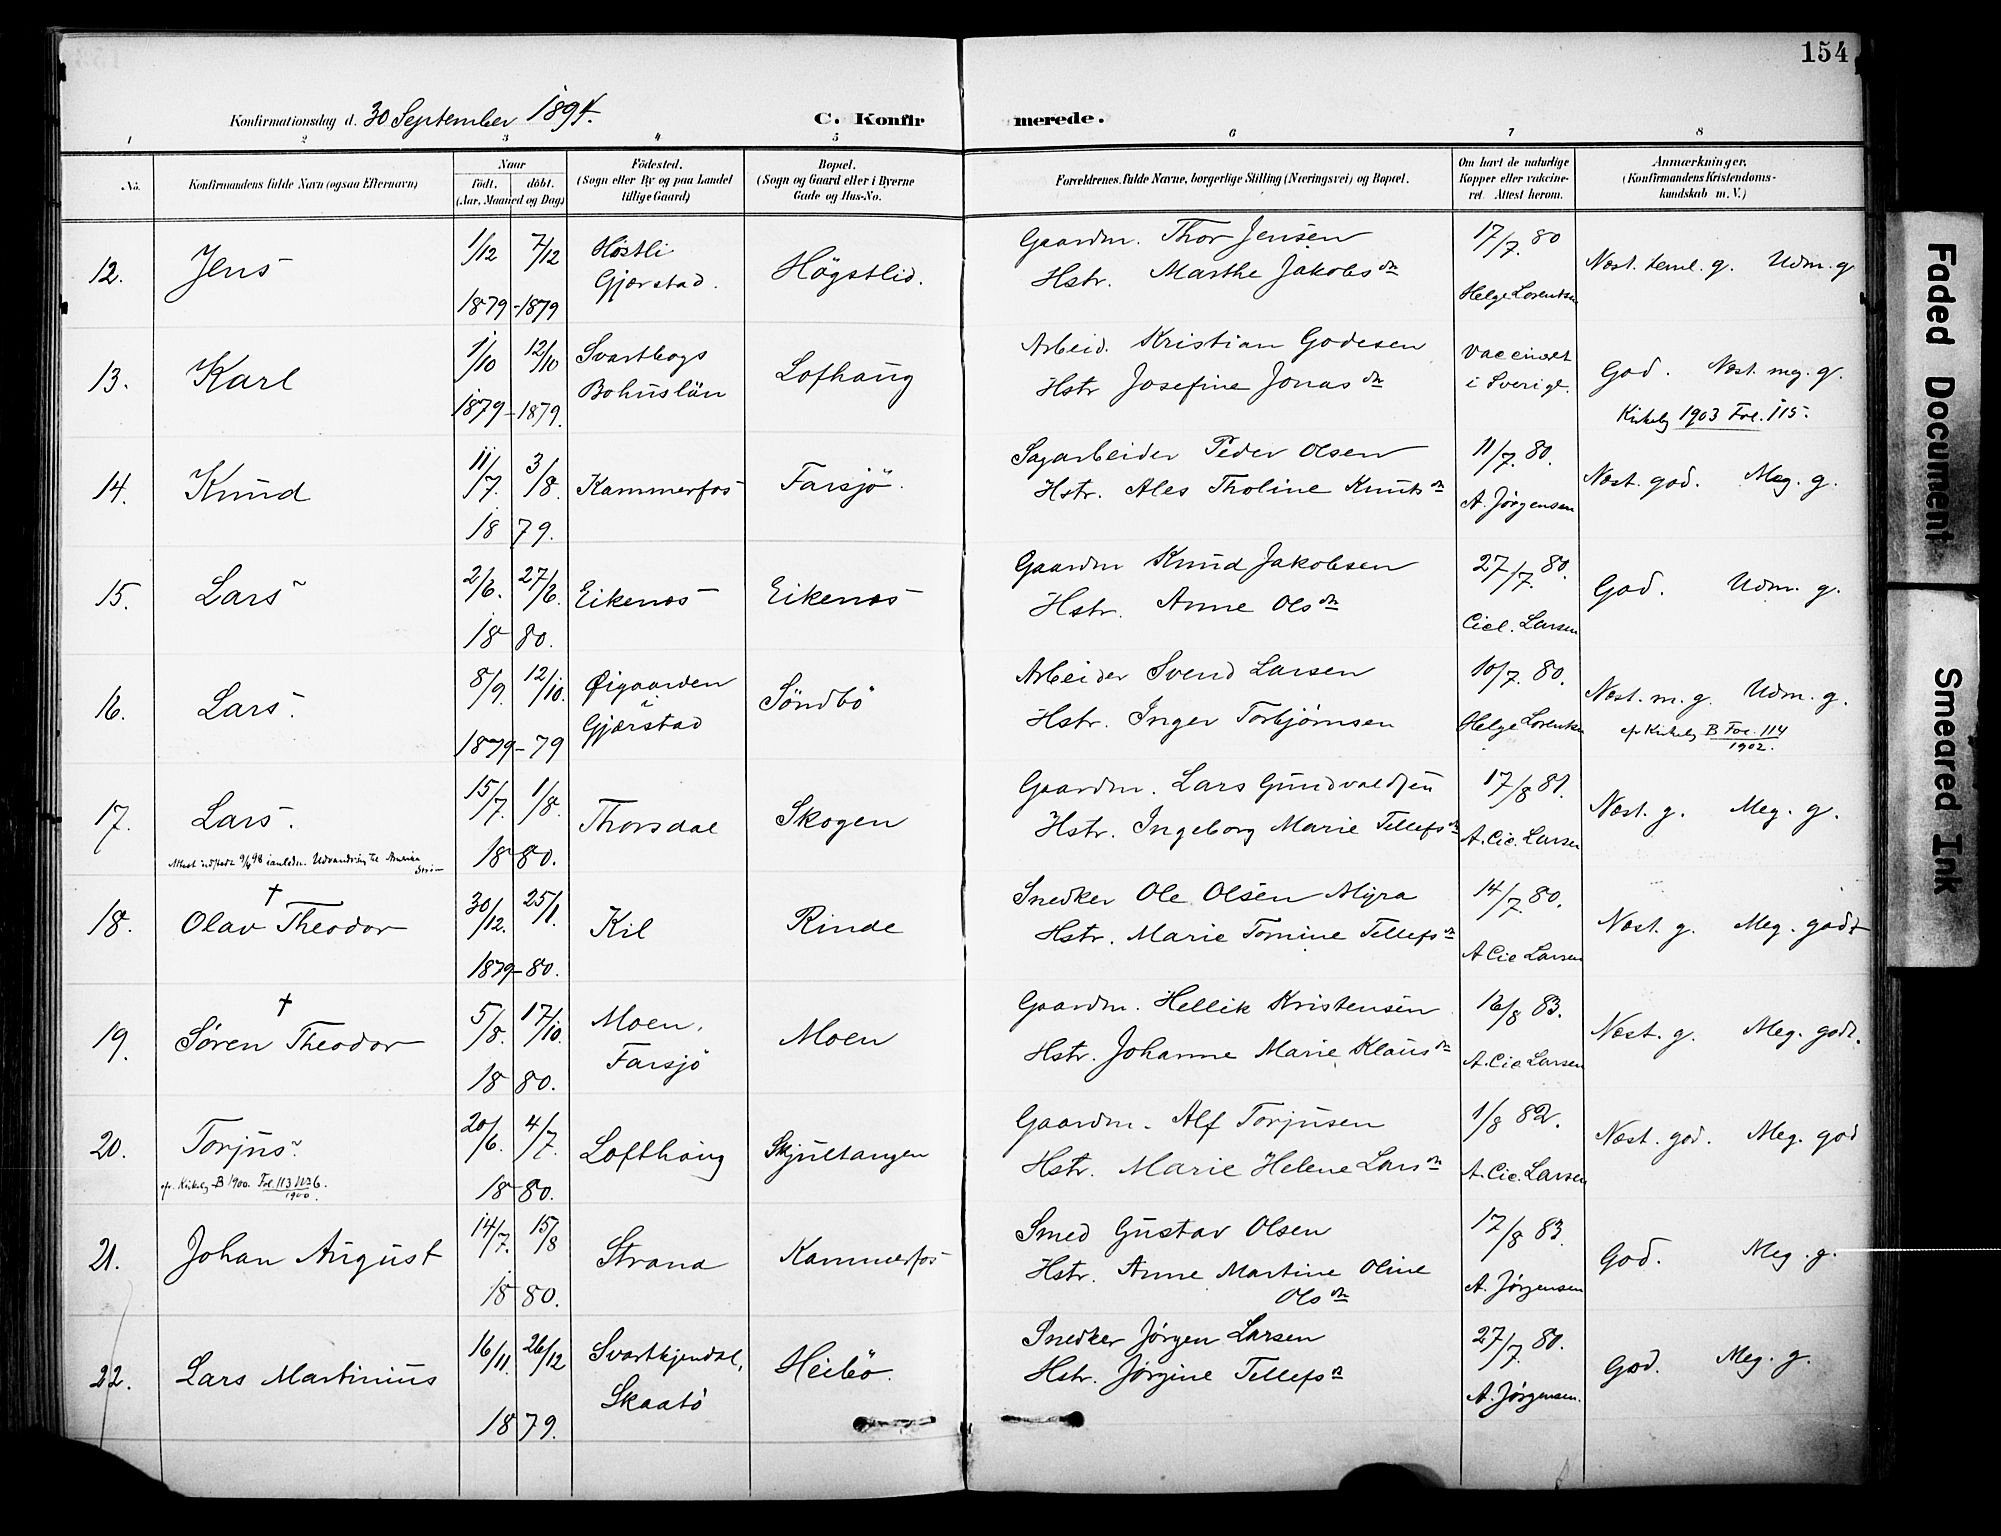 154
Konfirmationsdag d. 30 September 1894.
C. Konfir merede.
1 2 3 4 5 6 7 8
No. Konfirmandens fulde Navn (ogsaa Efternavn) Naar født, døbt. (Aar, Maaned og Dag) Födested. (Sogn eller By og paa Landet tillige Gaard) Bopæl. (Sogn og Gaard eller i Byerne Gade og Hus-No. Forældrenes fulde Navne, borgerlige Stilling (Næringsvei) og Bopæl. Om havt de naturlige Kopper eller vakcineret. Attest herom. Anmærkninger. (Konfirmandens Kristendomskundskab m. V.)
12. Jens 1/12 7/12 1879-1879 Høstli Gjerstad. Högstlid. Gaardm. Thor Jensen 17/7. 80 Næst. teml. g. Udm. g
Hstr. Marthe Jakobsdn Helge Lorentsen
13. Karl 1/10 12/10 1879-1879. Svartbogs Bohuslän Lofthaug Arbeid. Kristian Godesen vaccineret God. Næst. meg. g.
Hstr Josefine Jonasdn i Sverige.
Kirkebg 1903 Fol. 115.
14. Knud 11/7. 3/8. 1879. Kammerfos Farsjö. Sagarbeider Peder Olsen 11/7. 80. Næst. god. Meg. g.
Hstr. Ales Tholine Knutsdn A. Jørgensen
15. Lars 2/6. 27/6. 1880. Eikenæs Eikenæs Gaardm Knud Jakobsen 27/7. 80. God. Udm. g.
Hstr. Anne Olsdn Cicl. Larsen
16. Lars. 8/9. 12/10. 1879-79 Øigaarden i Gjerstad Söndbö Arbeider Svend Larsen 10/7. 80. Næst. m. g. Udm. g.
Hstr. Inger Torbjørnsen Helge Lorentsen cfr Kirkebg B Fol. 114 1902.
17. Lars. 15/7. 1/8. 1880. Thorsdal Skogen Gaardm. Lars Gundvaldsen 17/8 81. Næst. g. Meg. g.
Hstr. Ingeborg Marie Tellefsdn A. Cic. Larsen
Attest udstedt 9/4 98 ianledn. Udvandring til Amerika
18. † Olav Theodor 30/12. 25/1. 1879-80. Kil Rinde Snedker Ole Olsen Myra 14/7. 80. Næst. g. Meg. godt
Hstr. Marie Tomine Tellefsdn A Cic Larsen
19. † Søren Theodor 5/8. 17/10. 1880. Moen, Farsjö Moen Gaardm. Hellik Kristensen 16/8 83. Næst. g. Meg. godt.
Hstr. Johanne Marie Klausdn A. Cic Larsen
20. Torjus 20/6. 4/7. 1880. Lofthaug Skjultangen Gaardm. Alf Torjusen 1/8 82. Næst. god. Meg. god
Hstr. Marie Helene Larsdn A. Cic. Larsen
cfr. Kirkebg B 1900. Fol. 113 No 6. 1900.
21. Johan August 14/7. 15/8 1880. Strand Kammerfos Smed Gustav Olsen 17/8 83. God. Meg. g.
Hstr. Anne Martine Oline Olsdn A. Jørgensen
22. Lars Martinius 16/11. 26/12 1879. Svartkjendal, Skaatö Heibö. Snedker Jørgen Larsen 27/7. 80. God. Meg. g.
Hstr. Jørgine Tellefsdn A. Jørgensen.
Faded Document
Smeared Ink